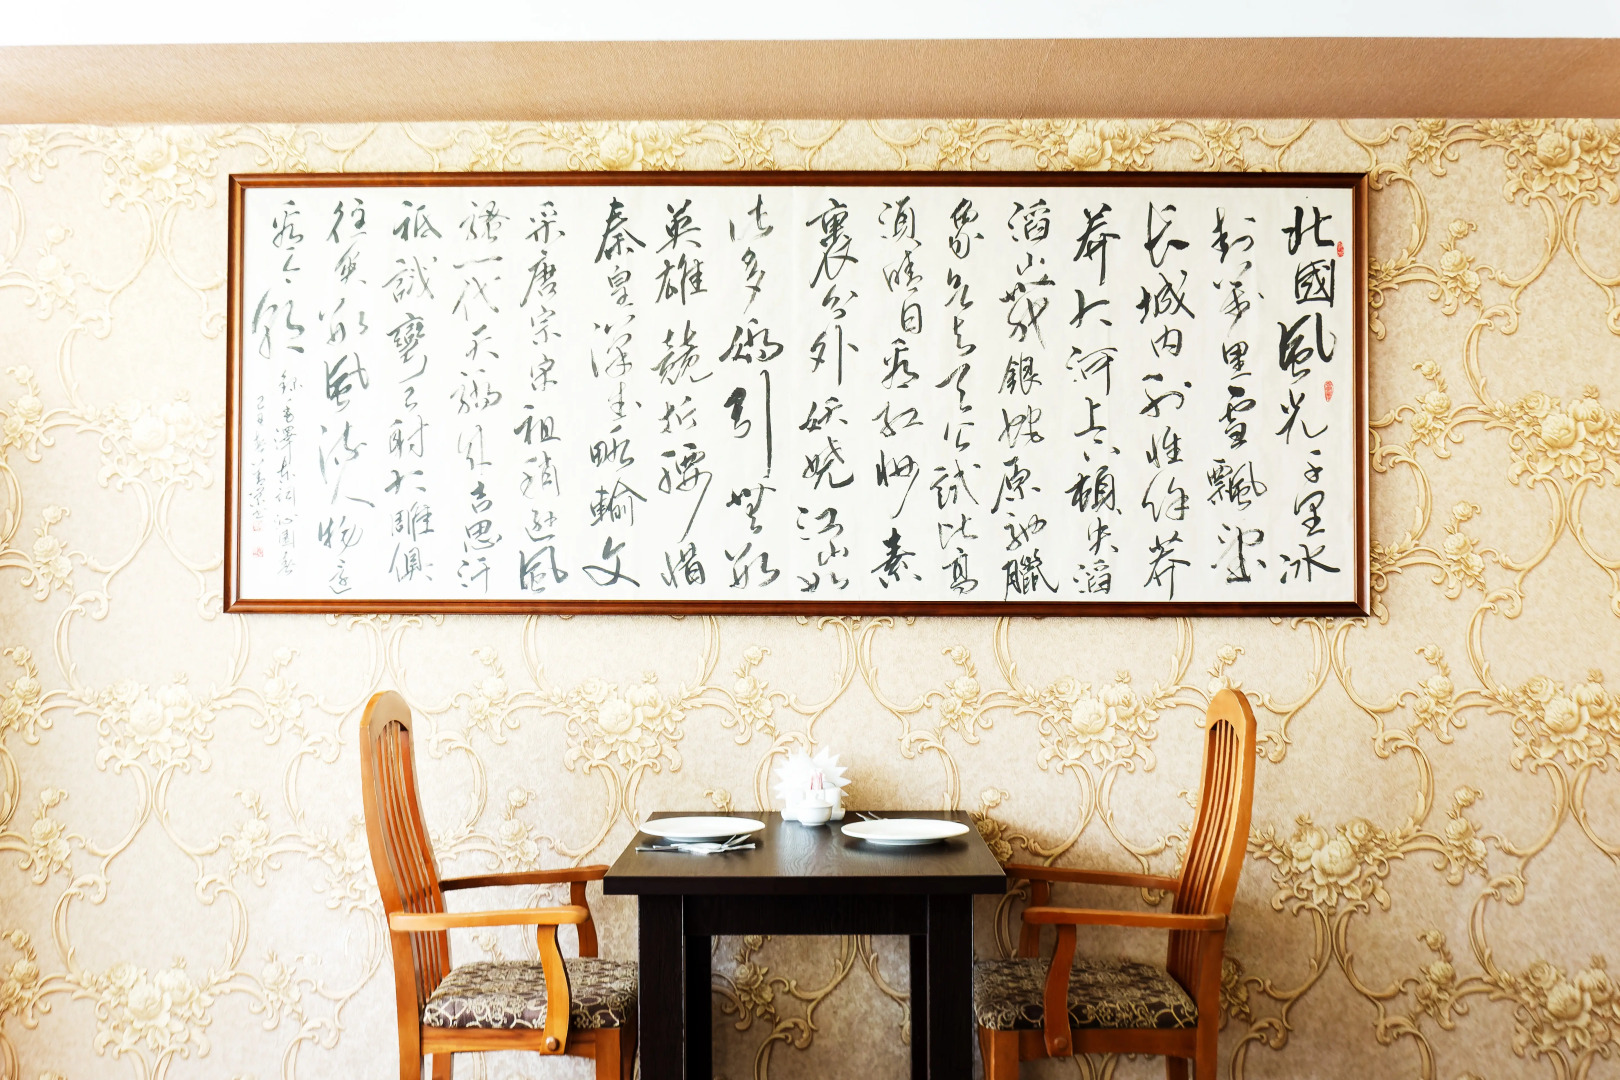 北國風光千里冰
封萬里雪飄望
长城内外惟餘莽
莽大河上下頓失滔
滔山舞銀蛇原馳臘
象欲與天公試比高
須晴日看紅妝素
裹分外妖嬈江山如
此多嬌引無數
英雄競折腰惜
秦皇漢武略輸文
采唐宗宋祖稍遜風
騷一代天驕成吉思汗
祇識彎弓射大雕俱
往矣數風流人物還
看今朝
錄毛澤東詞沁園春